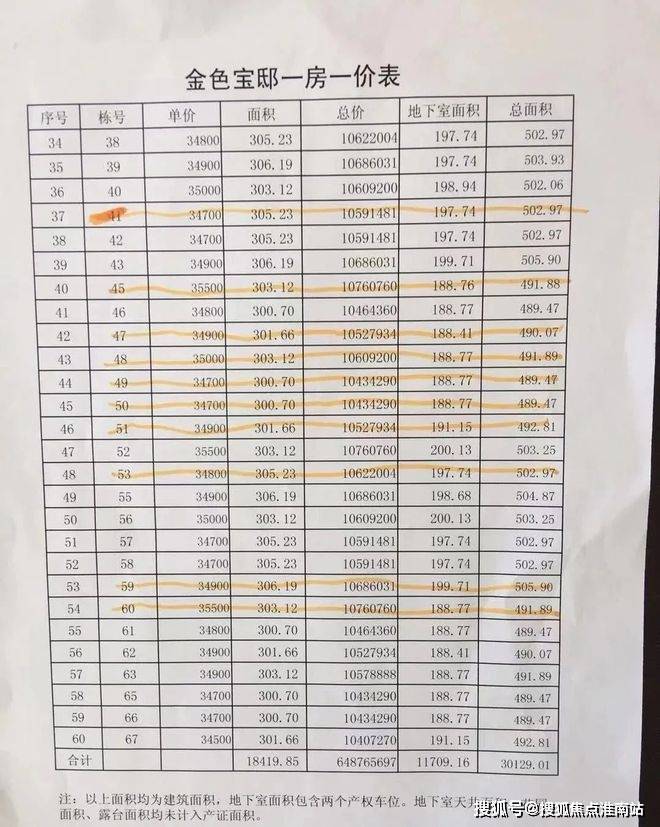 金色宝邸一房一价表
序号 栋号 单价 面积 总价 地下室面积 总面积
34 38 34800 305.23 10622004 197.74 502.97
35 39 34900 306.19 10686031 197.74 503.93
36 40 35000 303.12 10609200 198.94 502.06
37 41 34700 305.23 10591481 197.74 502.97
38 42 34700 305.23 10591481 197.74 502.97
39 43 34900 306.19 10686031 199.71 505.90
40 45 35500 303.12 10760760 188.76 491.88
41 46 34800 300.70 10464360 188.77 489.47
42 47 34900 301.66 10527934 188.41 490.07
43 48 35000 303.12 10609200 188.77 491.89
44 49 34700 300.70 10434290 188.77 489.47
45 50 34700 300.70 10434290 188.77 489.47
46 51 34900 301.66 10527934 191.15 492.81
47 52 35500 303.12 10760760 200.13 503.25
48 53 34800 305.23 10622004 197.74 502.97
49 55 34900 306.19 10686031 198.68 504.87
50 56 35000 303.12 10609200 200.13 503.25
51 57 34700 305.23 10591481 197.74 502.97
52 58 34700 305.23 10591481 197.74 502.97
53 59 34900 306.19 10686031 199.71 505.90
54 60 35500 303.12 10760760 188.77 491.89
55 61 34800 300.70 10464360 188.77 489.47
56 62 34900 301.66 10527934 188.41 490.07
57 63 34900 303.12 10578888 188.77 491.89
58 65 34700 300.70 10434290 188.77 489.47
59 66 34700 300.70 10434290 188.77 489.47
60 67 34500 301.66 10407270 191.15 492.81
合计 18419.85 648765697 11709.16 30129.01
注：以上面积均为建筑面积，地下室面积包含两个产权车位。地下室天井
面积、露台面积均未计入产证面积。
搜狐号@搜狐焦点淮南站